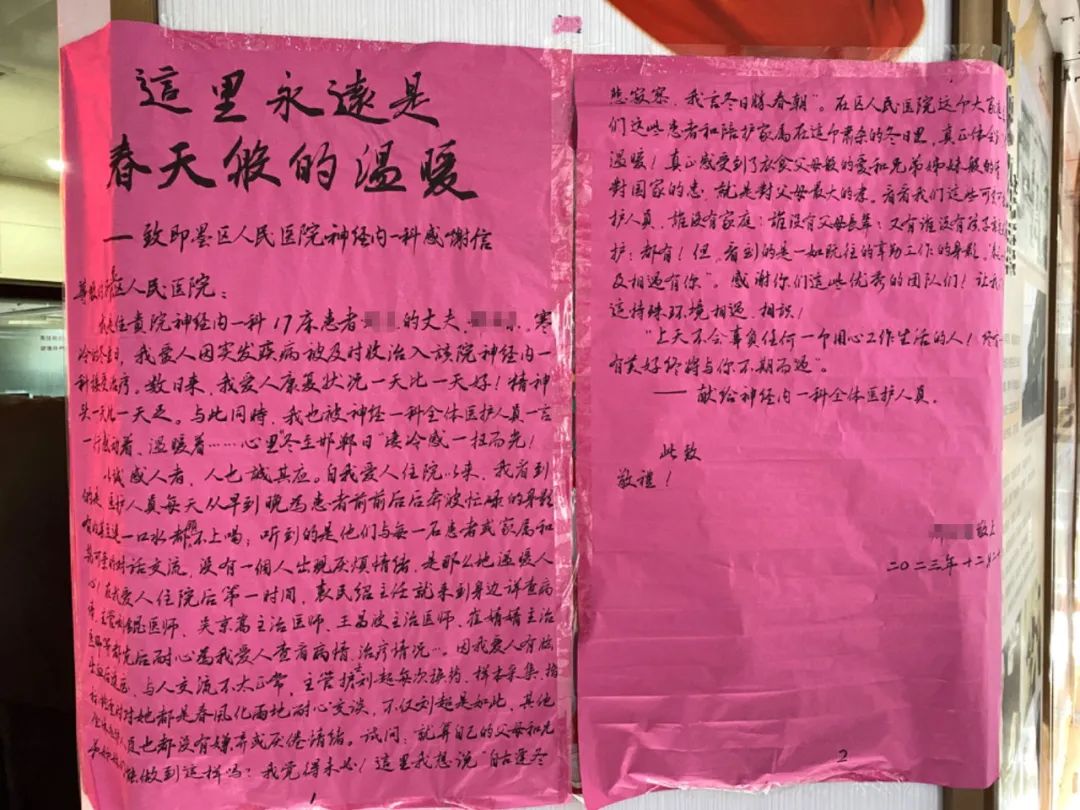 這里永遠是
春天般的溫暖
一致即墨区人民医院神经内一科感谢信
区人民医院:
住貴院神经内一科17床患者 的丈夫 寒
冷的冬日 我爱人因突发疾病被及时收治入該院神经内一
科 数日来,我爱人康复状况一天比一天好!精神
头一天比一天足。与此同時,我也被神经一科全体医护人员一言
一行感动着、温暖着……心里"冬至邯郸日"凄冷感一扫而光!
以诚感人者,人也誠其应。自我爱人住院以来,我看到
的是 医护人员每天从早到晚为患者前前后后奔波忙碌的身影
一口水都 不上喝;听到的是他们与每一名患者或家属和
的对话交流,没有一個人出现厌烦情绪,是那么地温暖人
心!在我爱人住院后第一时间,袁民绍主任就来到身边详查病
情,主管 医师、吴京嵩主治医师、王昌波主治医师、崔婧婧主治
医师等都先后耐心為我爱人查看病情,治疗情况…。因我爱人有
与人交流不太正常,主管 刘超每次换药、样本采集、
对她都是春風化雨地耐心交谈,不仅刘超是如此,其他
也都没有嫌弃或厌倦情绪。试问:就算自己的父母和兄
能做到這样吗?我觉得未必!這里我想说"自古逢冬
1
悲寂寥,我言冬日勝春朝"。在区人民医院这个大
们这些患者和陪护家属在這个肃杀的冬日里,真正体会
温暖!真正感受到了衣食父母般的爱和兄弟姊妹般的
對国家的忠,就是對父母最大的孝。看看我們这些可
护人員,誰没有家庭;誰没有父母長辈;又有谁没有孩子
护;都有!但,看到的是一如既往的辛勤工作的身影,
及相遇有你"。感谢你们這些优秀的团队们!让我
這特殊环境相遇、相识!
"上天不会辜负任何一个用心工作生活的人!
有美好终将与你不期而遇"。
——献给神经内一科全体医护人员。
此致
敬禮!
敬上
二〇二三年十二月
2